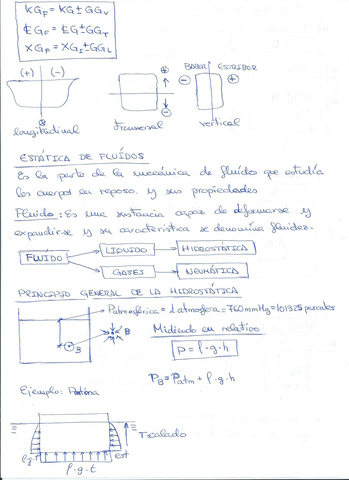 KG_F = KG ± GG_V
₵G_F = ₵G ± GG_T
XG_F = XG_I ± GG_L
(+) (-)
BABOR ESTRIBOR
longitudinal
transversal
vertical
ESTÁTICA DE FLUÍDOS
Es la parte de la mecánica de fluídos que estudía
los cuerpos en reposo y sus propiedades
Fluido: Es una sustancia capaz de deformarse y
expandirse y su característica se denomina fluidez.
FLUÍDO LIQUIDO HIDROSTÁTICA
GASES NEUMÁTICA
PRINCIPIO GENERAL DE LA HIDROSTÁTICA
Patmosférica = 1 atmosfera = 760mmHg = 101325 pascales
B B
Midiendo en relativo
P = ρ·g·h
P_B = P_atm + ρ·g·h
Ejemplo:
Tcalado
ρ.g.t
ρ.g.t